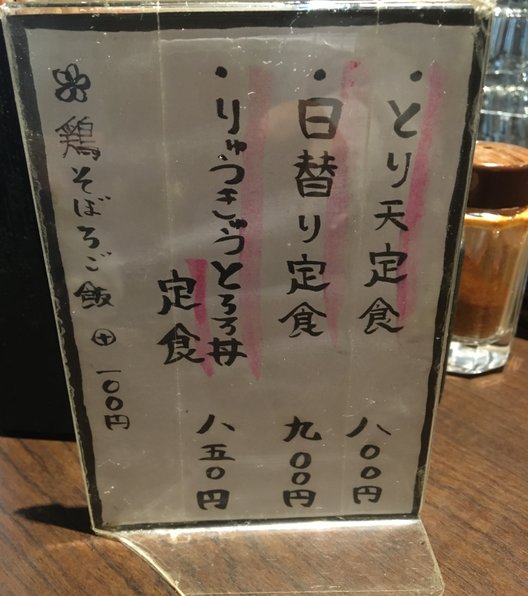 ・とり天定食 八〇〇円
・日替り定食 九〇〇円
・りゅうきゅうとろろ丼
定食 八五〇円
鶏そぼろご飯 ㊉ 一〇〇円